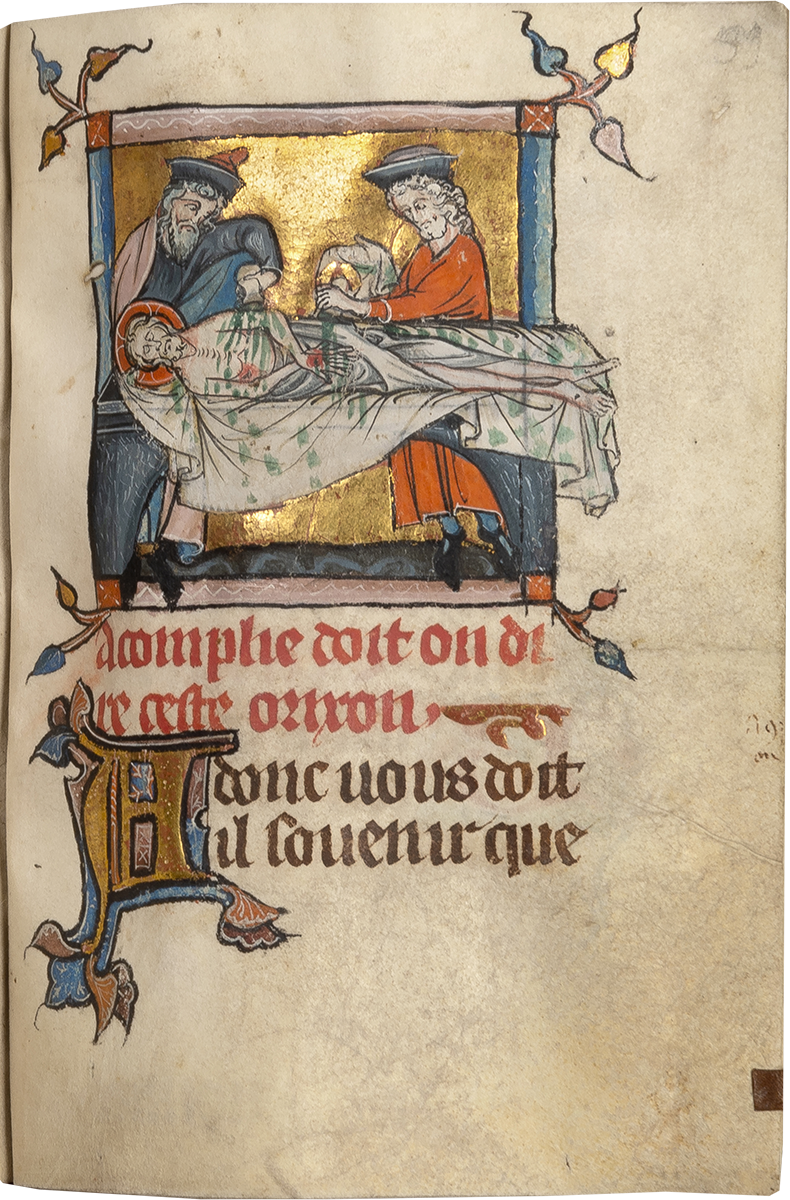 99
Acomplie doit on di
re ceste orixon
Adonc uous doit
il souenir que